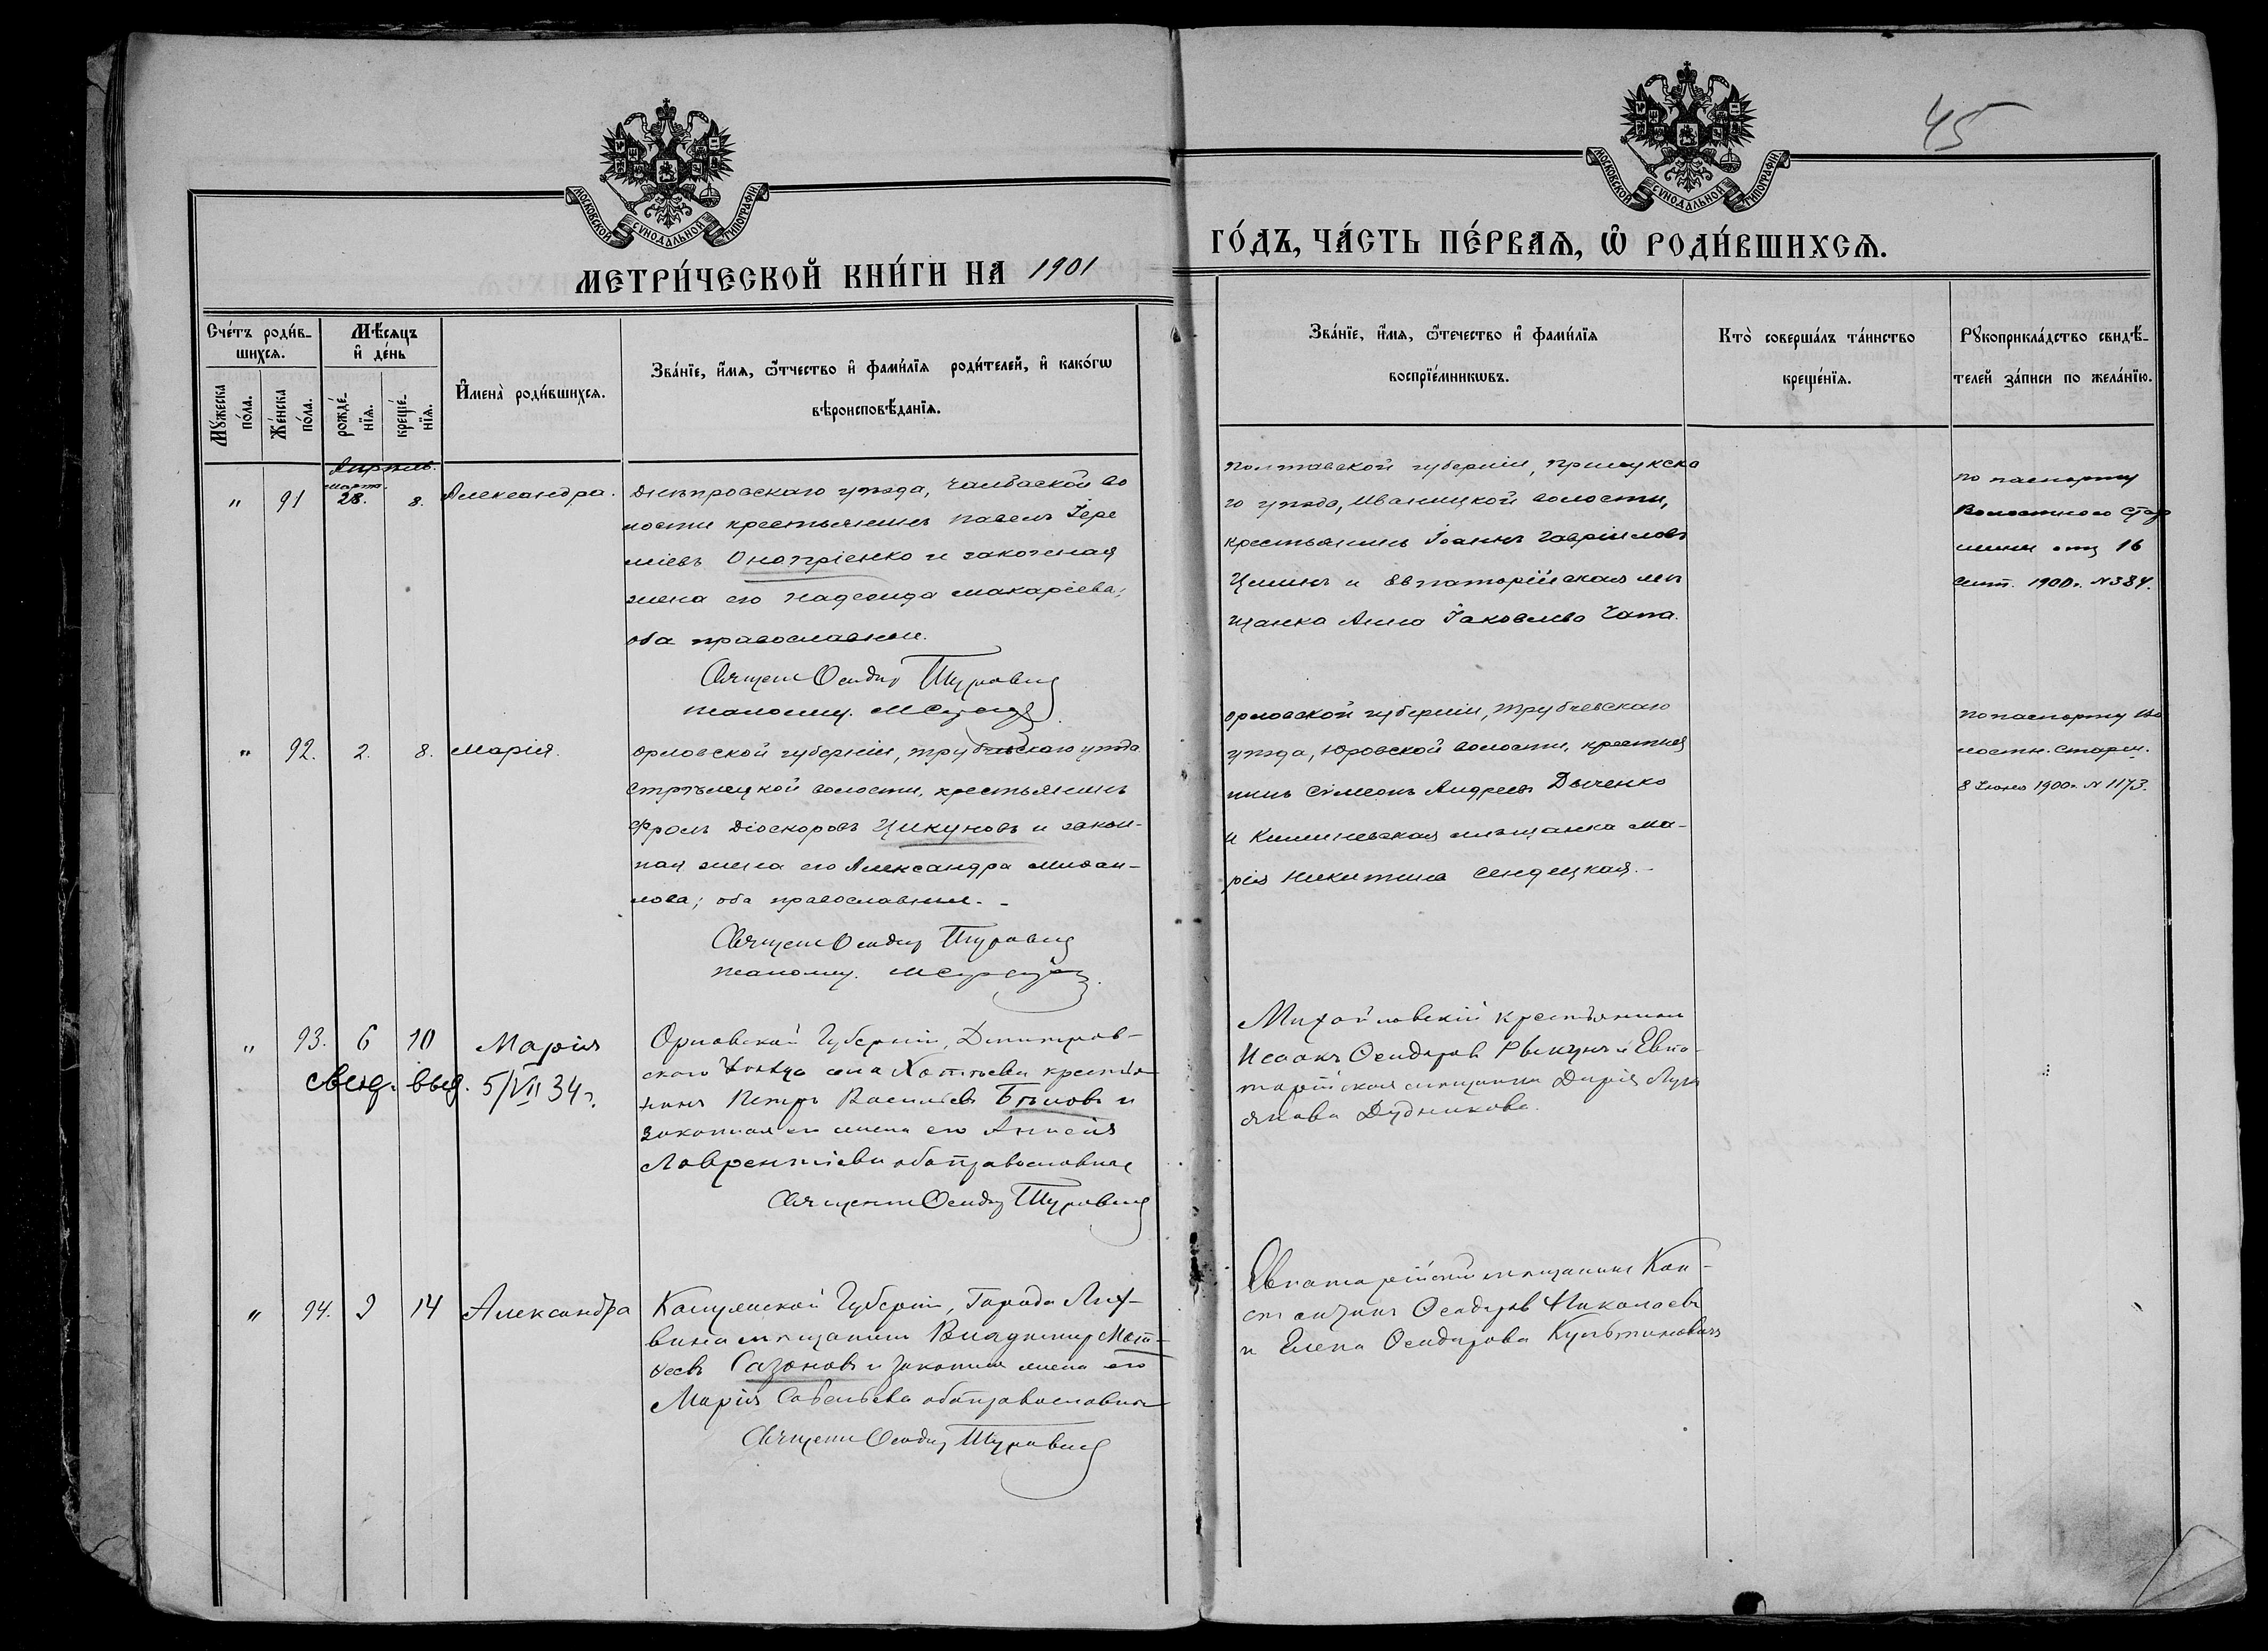 45
МОСКОВСКОЙ СѴНОДАЛЬНОЙ ТИПОГРАФІИ
МОСКОВСКОЙ СѴНОДАЛЬНОЙ ТИПОГРАФІИ
МЕТРИ́ЧЕСКОЙ КНИ́ГИ НА 1901
ГО́ДЪ, ЧА́СТЬ ПЕ́РВАЯ, Ѿ РОДИ́ВШИХСѦ.
Сче́тъ роди́в-
шихсѧ.
Мꙋ́жеска
по́ла.
Же́нска
по́ла.
Мѣ́сяцъ
и҆ де́нь
рожде́-
нїѧ.
креще́-
нїѧ.
И҆мена̀ роди́вшихсѧ.
Зва́нїе, и҆́мѧ, ѻ҆́тчество и҆ фами́лїѧ роди́телей, и҆ како́гѡ
вѣроисповѣ́данїѧ.
Зва́нїе, и҆́мѧ, ѻ҆́течество и҆ фами́лїѧ
воспрїе́мникѡвъ.
Кто̀ соверша́лъ та́инство
креще́нїѧ.
Рꙋкоприкла́дство свидѣ́-
телей за́писи по жела́нїю.
Апрѣль.
" 91 Марта. 28. 8. Александра.
Днѣпровскаго уѣзда, Чалбаской во
лости крестьянинъ Павелъ Іере
міевъ Оноприенко и законная
жена его Надежда Макаріева;
оба православные.
Священ Ѳеодор
Псаломщ.
Полтавской губерніи, Прилукска
го уѣзда, Иваницкой волости,
крестьянинъ Іоаннъ Гавріиловъ
и Евпаторійская мѣ
щанка Анна Іаковлева Чапа.
по паспорту
Волостного Стар
шины отъ 16
1900 г. № 384.
" 92. 2. 8. Марія.
Орловской губерніи, Трубчевскаго уѣзда
Стрѣлецкой волости, крестьянинъ
Фролъ Діоскоровъ Цикуновъ и закон-
ная жена его Александра Михаи-
лова; оба православные.
Священ Ѳеодор
Псаломщ.
Орловской губерніи, Трубчевскаго
уѣзда, Юровской волости, крестья
нинъ Симеонъ Андреевъ Дыченко
и Кишиневская мѣщанка Ма-
рія Никитина Сендецкая.
По паспорту Во
лостн. Старш.
8 1900 г. № 1173.
" 93. 6 10 Марія
Свид. выд. 5/VII 34 г.
Орловской Губерніи, Димитров-
скаго Уѣзда села крестья
нинъ Петръ Васильевъ Бѣловъ и
законная его жена его
Лаврентіева оба православные
Священ Ѳеодор
Михайловскій крестьянинъ
Исаакъ Ѳеодоровъ и Евпа-
торійская мѣщанка Дарія Лукь
янова Дудникова.
" 94. 9 14 Александра
Калужской Губерніи, Города Лих-
вина мѣщанинъ Владимир Мат-
ѳеевъ Сазоновъ и законная жена его
Марія Савельева оба православные
Священ Ѳеодор
Евпаторійскій мѣщанинъ Кон-
стантинъ Ѳеодоровъ Николаевъ
и Елена Ѳеодорова